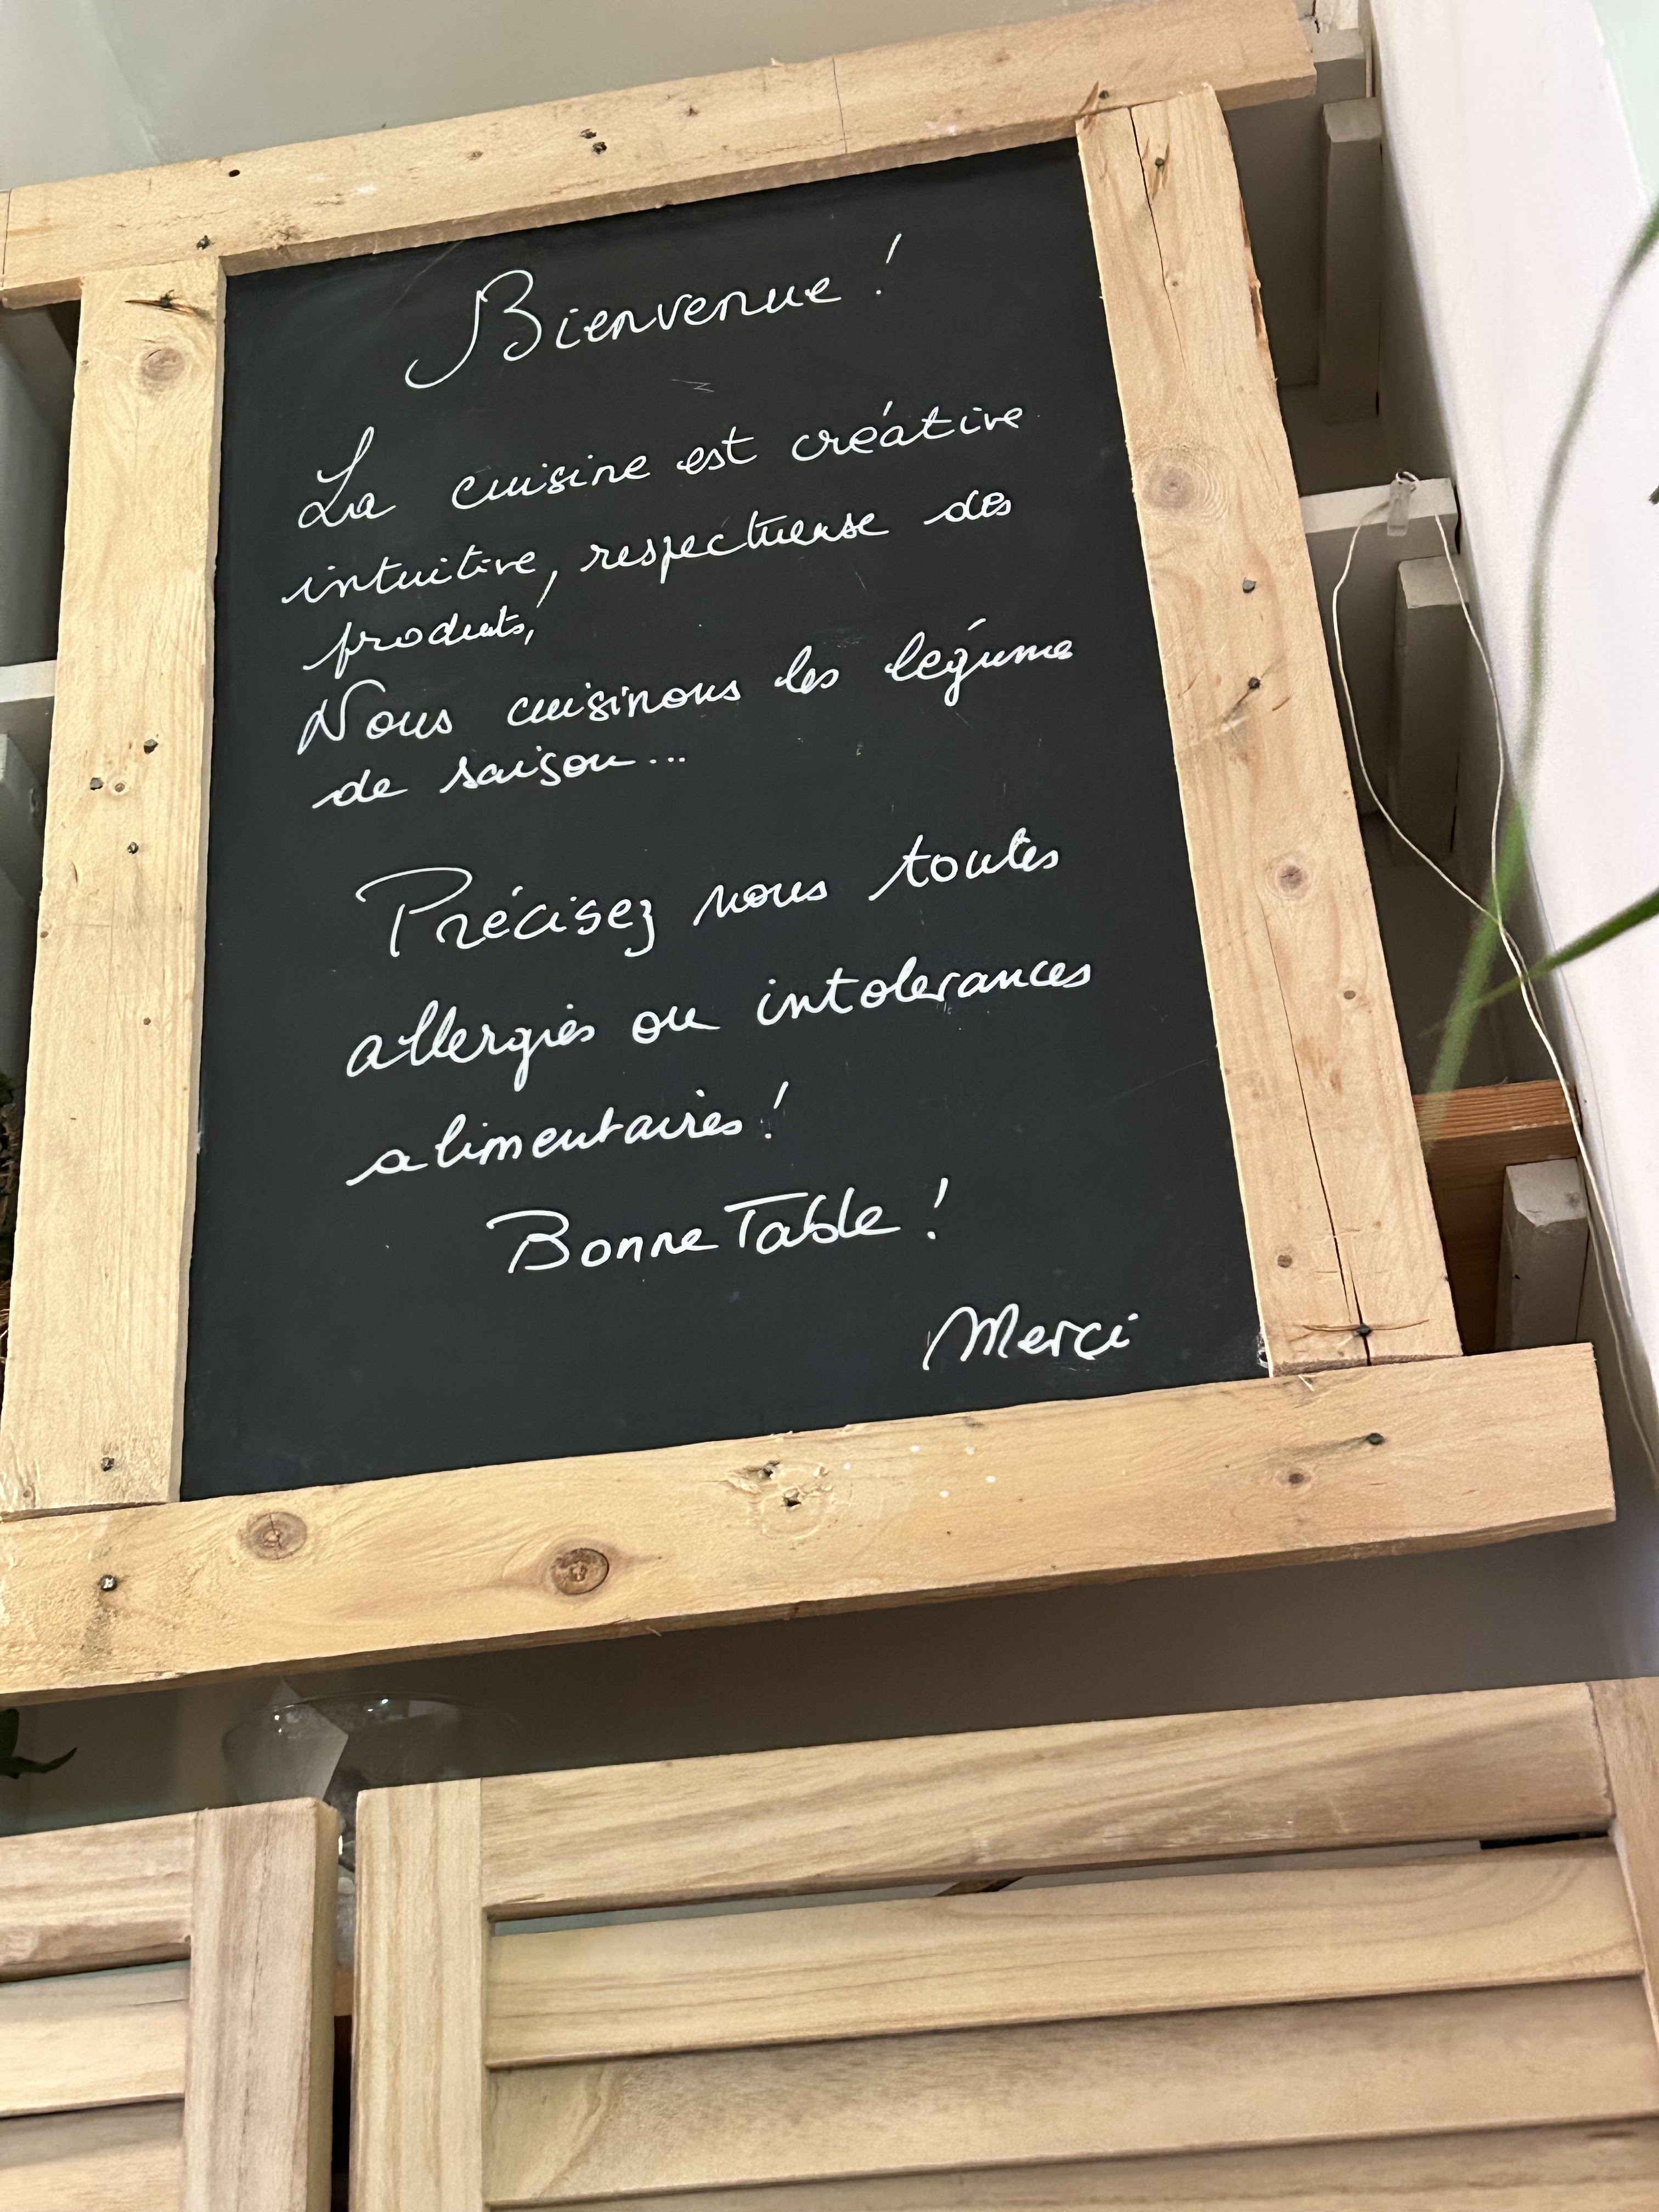 Bienvenue !
La cuisine est créative
intuitive, respectueuse des
produits,
Nous cuisinons les légumes
de saison...
Précisez nous toutes
allergies ou intolerances
alimentaires !
Bonne Table !
Merci